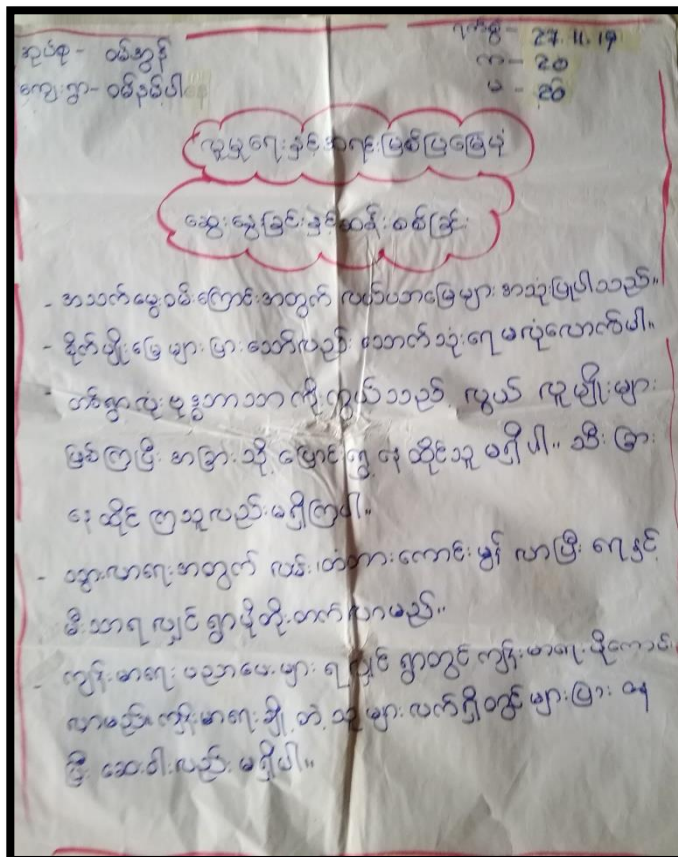 အုပ်စု - ဝမ်အွန်
ကျေးရွာ - ဝမ်နမ်ပါ
ရက်စွဲ - 27.11.19
က - 20
မ - 20
လူမှုရေးနှင့်အရင်းမြစ်ပြမြေပုံ
ဆွေးနွေးခြင်းနှင့်ဆန်းစစ်ခြင်း
- အသက်မွေးဝမ်းကြောင်းအတွက် လယ်ယာမြေများ အသုံးပြုပါသည်။
- စိုက်ပျိုးမြေများပြားသော်လည်း သောက်သုံးရေမလုံလောက်ပါ။
- တစ်ရွာလုံးဗုဒ္ဓဘာသာကိုးကွယ်သည့် လွယ် လူမျိုးများ
ဖြစ်ကြပြီး အခြားသို့ ပြောင်းရွှေ့နေထိုင်သူ မရှိပါ။ သီးခြား
နေထိုင်ကြသူလည်းမရှိကြပါ။
- သွားလာရေးအတွက် လမ်း၊တံတားကောင်းမွန် လာပြီး ရေနှင့်
မီးသာရလျှင် ရွာပိုတိုးတက်လာမည်။
- ကျန်းမာရေး ပညာပေးများ ရလျှင် ရွာတွင် ကျန်းမာရေးပိုကောင်း
လာမည်။ကျန်းမာရေးချို့တဲ့သူများ လက်ရှိတွင်များပြားနေ
ပြီး ဆေးဝါးလည်း မရှိပါ။